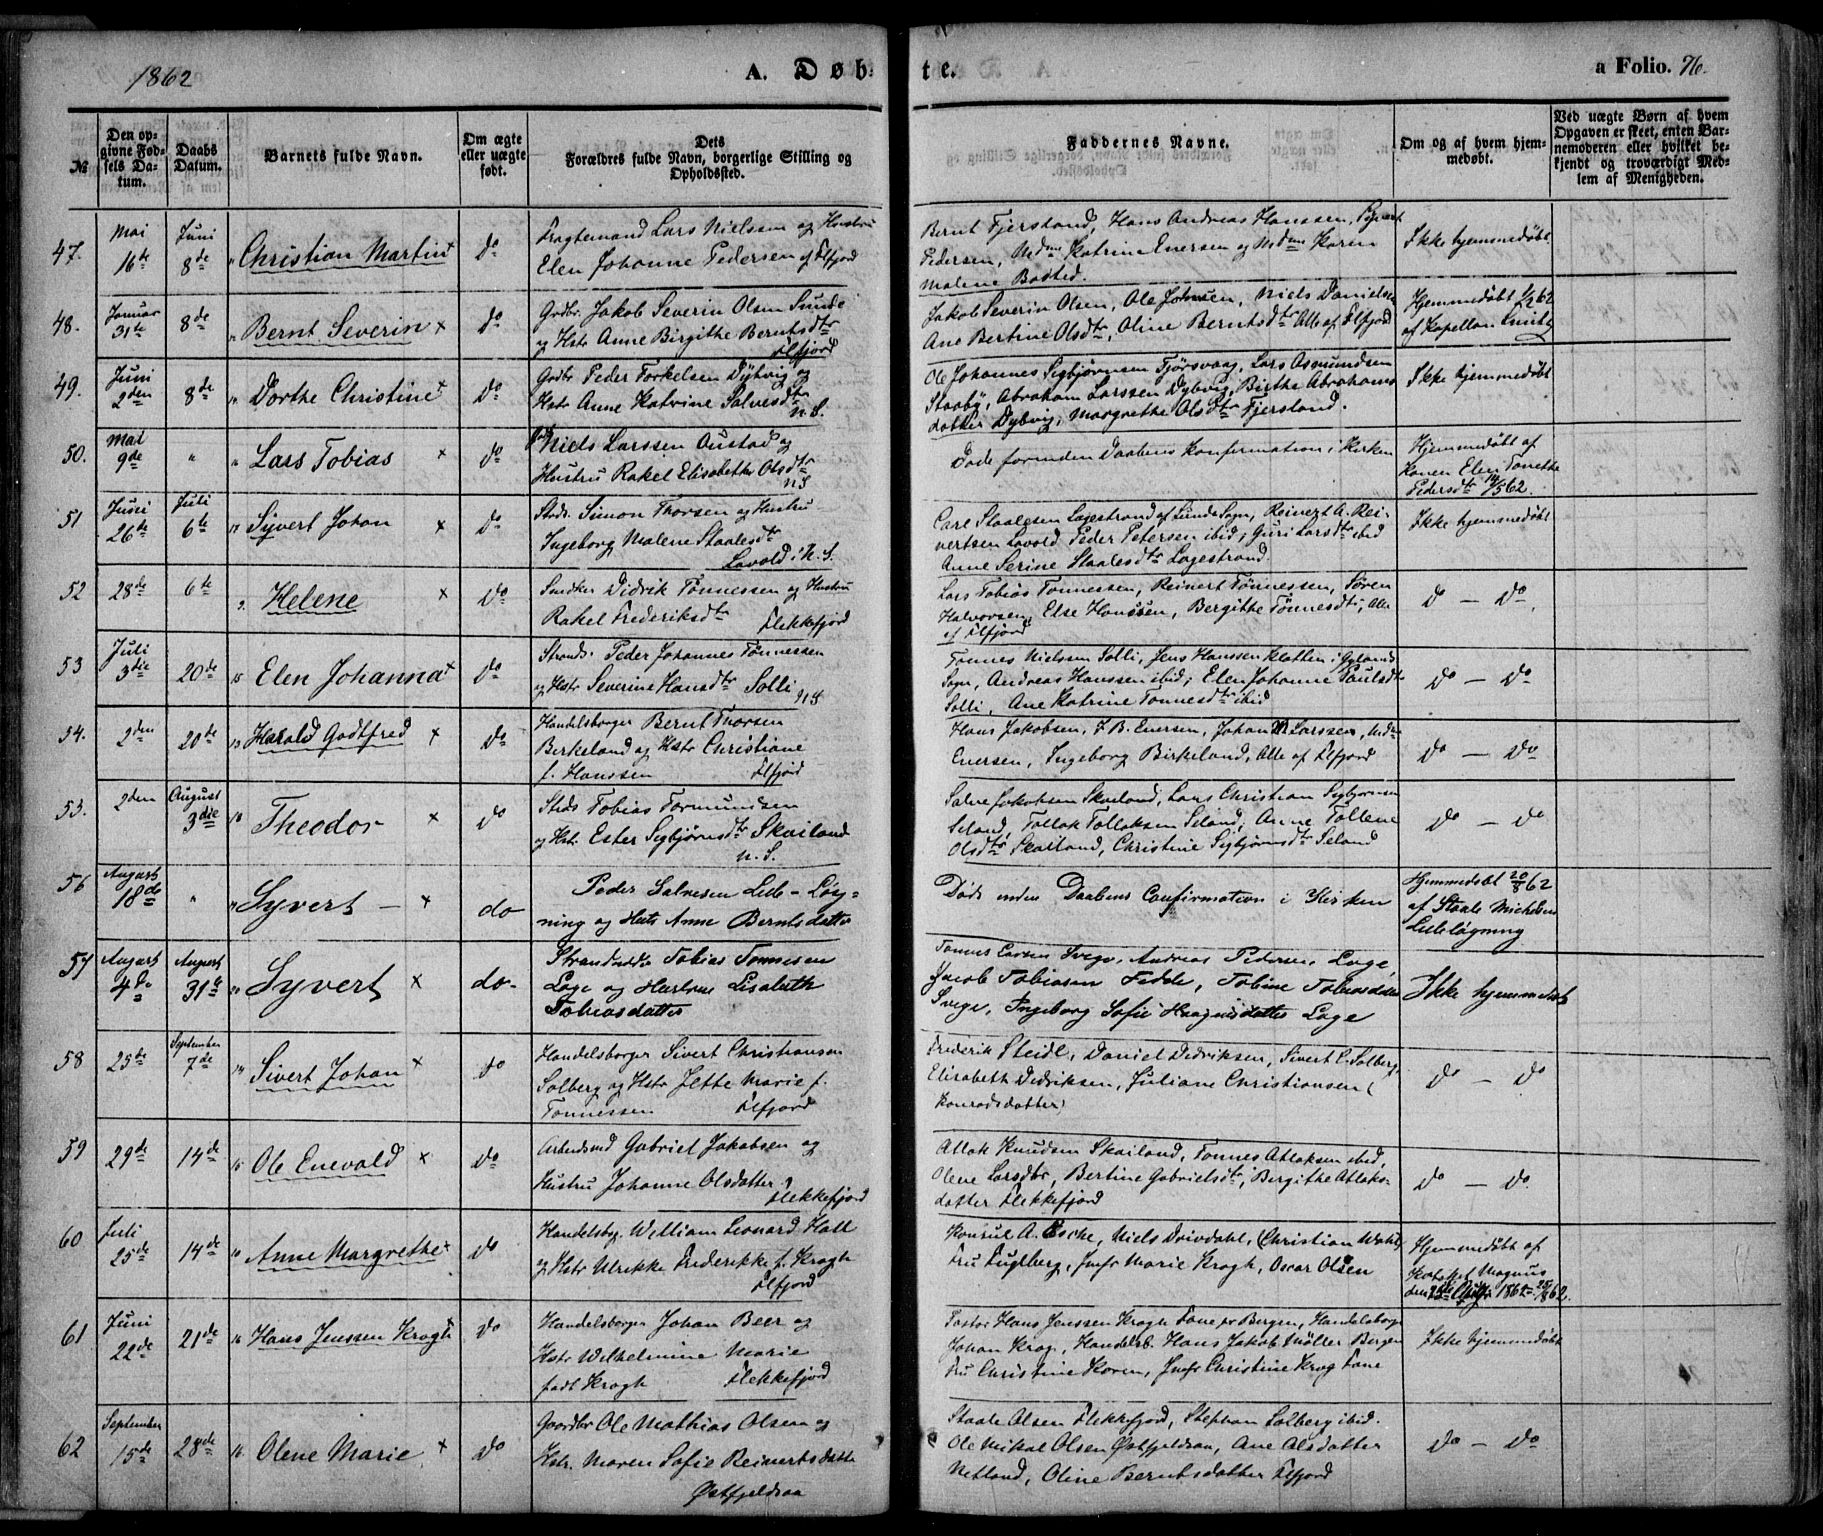 1862
A. Døb-
te.
a Folio. 76.
№
Den op-
givne Fød-
sels Da-
tum.
Daabs
Datum.
Barnets fulde Navn.
Om ægte
eller uægte
født.
Dets
Forældres fulde Navn, borgerlige Stilling og
Opholdssted.
Faddernes Navne.
Om og af hvem hjem-
medøbt.
Ved uægte Børn af hvem
Opgaven er skeet, enten Bar-
nemoderen eller hvilket be-
kjendt og troværdigt Med-
lem af Menigheden.
47.
Mai
16de
Juni
8de
Christian Martin
do
Fragtemand Lars Nielssen og Hustru
Elen Johanne Pedersen af Flfjord
Bernt Fjersland, Hans Andreas Hanssen, Syvert
Pedersen, Mdm Katrine Enersen og Mdm Karen
Malene Bosted.
Ikke hjemmedøbt
48.
Januar
31te
8de
Bernt Severin
do
Grdbr. Jakob Severin Olsen Sunde
og Hstr Anne Birgithe Berntsdtr
Flfjord
Jakob Severin Olsen, Ole Johnsen, Niels Danielsen
Ane Bertine Olsdtr, Oline Berntsdtr Alle af Flfjord
Hjemmedøbt 1/2 62
af Kapellan Smith
49.
Juni
2den
8de
Dorthe Christine
do
Grdbr Peder Torkelsen Dybvig og
Hstr Anne Katrine Salvesdtr
N.S.
Ole Johannes Sigbjørnsen Tjørsvaag, Lars Asmundsen
Staaby, Abraham Larssen Dybvig, Birthe Abrahams
datter Dybvig, Margrethe Olsdtr Fjersland.
Ikke hjemmedøbt
50.
Mai
9de
"
Lars Tobias
do
Niels Larssen Austad og
Hustru Rakel Elisabeth Olsdtr
NS
Døde forinden Daabens Konfirmation i Kirken
Hjemmedøbt af
Konen Elen Tonette
Pedersdtr 14/5 62.
51
Juni
26de
Juli
6te
Syvert Johan
do
Stds. Simon Thorsen og Hustru
Ingeborg Malene Staalesdtr
Lavold i N.S.
Carl Staalesen Lagestrand af Lunde Sogn, Reinert A. Rei-
vertsen Lavold Peder Petersen ibid, Guri Larsdtr ibid
Anne Serine Staalesdtr Lagestrand
Ikke hjemmedøbt
52
28de
6te
Helene
do
Snedker Didrik Tønnessen og Hustru
Rakel Frederiksdtr
Flekkefjord
Lars Tobias Tonnessen, Reinert Tønnessen, Søren
Halvorsen, Else Hanssen, Bergitte Tønnesdtr, Alle
af Flfjord
do — do
53
Juli
3die
20de
Elen Johanna
do
Strands. Peder Johannes Tønnessen
og Hstr Severine Hansdtr Solli
NS
Tonnes Nielsen Solli, Jens Hanssen Klotten i Gylands
Sogn, Andreas Hanssen ibid; Elen Johanne Paulsdtr
Solli, Ane Katrine Tonnesdtr ibid
do — do
54.
2den
20de
Harald Godtfred
do
Handelsborger Bernt Thorsen
Birkeland og Hstr Christiane
f. Hanssen Flfjord
Hans Jakobsen, J. B. Enersen, Johan M Larssen, Mdm
Enersen, Ingeborg Birkeland, Alle af Flfjord
do — do
53.
2den
August
3die
Theodor
do
Stds Tobias Tormundsen
og Hstr. Ester Sigbjørnsdtr Skailand
N.S.
Salve Jakobsen Skailand, Lars Christian Sigbjørnsen
Seland, Tollak Tollaksen Seland, Anne Tollene
Olsdtr Skailand, Christine Sigbjørnsdtr Seland
do — do
56
August
18de
"
Syvert
do
Peder Salvesen Lille-Løg-
ning og Hustr Anne Berntsdatter
Døde inden Daabens Confirmation i Kirken
Hjemmedøbt 20/8 62
af Staale Michelsen
Lilleløgning
57
August
4de
August
31te
Syvert
do
Strandsidder Tobias Tonnesen
Loge og Hustrue Lisabeth
Tobiasdatter
Tonnes Larsen Svege, Andreas Pedersen Loge,
Jacob Tobiasen Fedde, Tobine Tobiasdatter
Svege, Ingeborg Sofie Haagensdatter Loge
Ikke hjemmedøbt
58
25de
September
7de
Sivert Johan
do
Handelsborger Sivert Christiansen
Solberg og Hstr Jette Marie f.
Tonnessen Flfjord
Frederik Steidl, Daniel Dedriksen, Sivert C. Solberg,
Elisabeth Dedriksen, Juliane Christiansen (
Konradsdatter)
do — do
59
29de
14de
Ole Enevald
do
Arbeidsmd Gabriel Jakobsen og
Hustru Johanne Olsdatter
Flekkefjord
Atlak Knudsen Skailand, Tonnes Atlaksen ibid,
Olene Larsdtr, Bertine Gabrielsdtr, Bergithe Atlaks-
datter Flekkefjord
do — do
60
Juli
25de
14de
Anne Margrethe
do
Handelsbg. William Leonard Hall
og Hstr Ulrikke Frederikke f. Krogh
Flfjord
Konsul A. Escke, Niels Drivdahl, Christian Wahl,
Fru Fuglberg, Jmfr Marie Krogh, Oscar Olsen
Hjemmedøbt af
Kateket Magnus
61
Juni
22de
21de
Hans Jenssen Krogh
do
Handelsborger Johan Beer og
Hstr Wilhelmine Marie
født Krogh Flekkefjord
Pastor Hans Jenssen Krogh Fane pr Bergen, Handelsborger
Johan Krog, Handelsb. Hans Jakob Møller Bergen
Fru Christine Koren, Jmfr Christine Krog Fane
Ikke hjemmedøbt
62
September
15de
28de
Olene Marie
do
Gaardbr Ole Mathias Olsen og
Hstr. Maren Sofie Reinertsdatter
Østfjeldsaa
Staale Olsen Flekkefjord, Stephan Solberg ibid.
Ole Mikal Olsen Østfjeldsaa, Ane Alsdatter
Netland, Oline Berntsdatter Flfjord
do — do